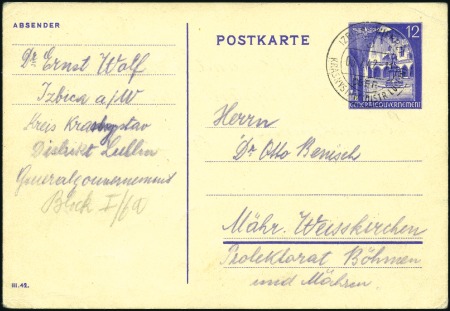 ABSENDER
Dr. Ernst Wolf
Izbica a/W
Kreis Krasnystav
Distrikt Lublin
Generalgouvernement
Block I/6a
III.42.
POSTKARTE
12
GENERALGOUVERNEMENT
Herrn
Dr Otto Benisch
Mähr. Weisskirchen
Protektorat Böhmen
und Mähren